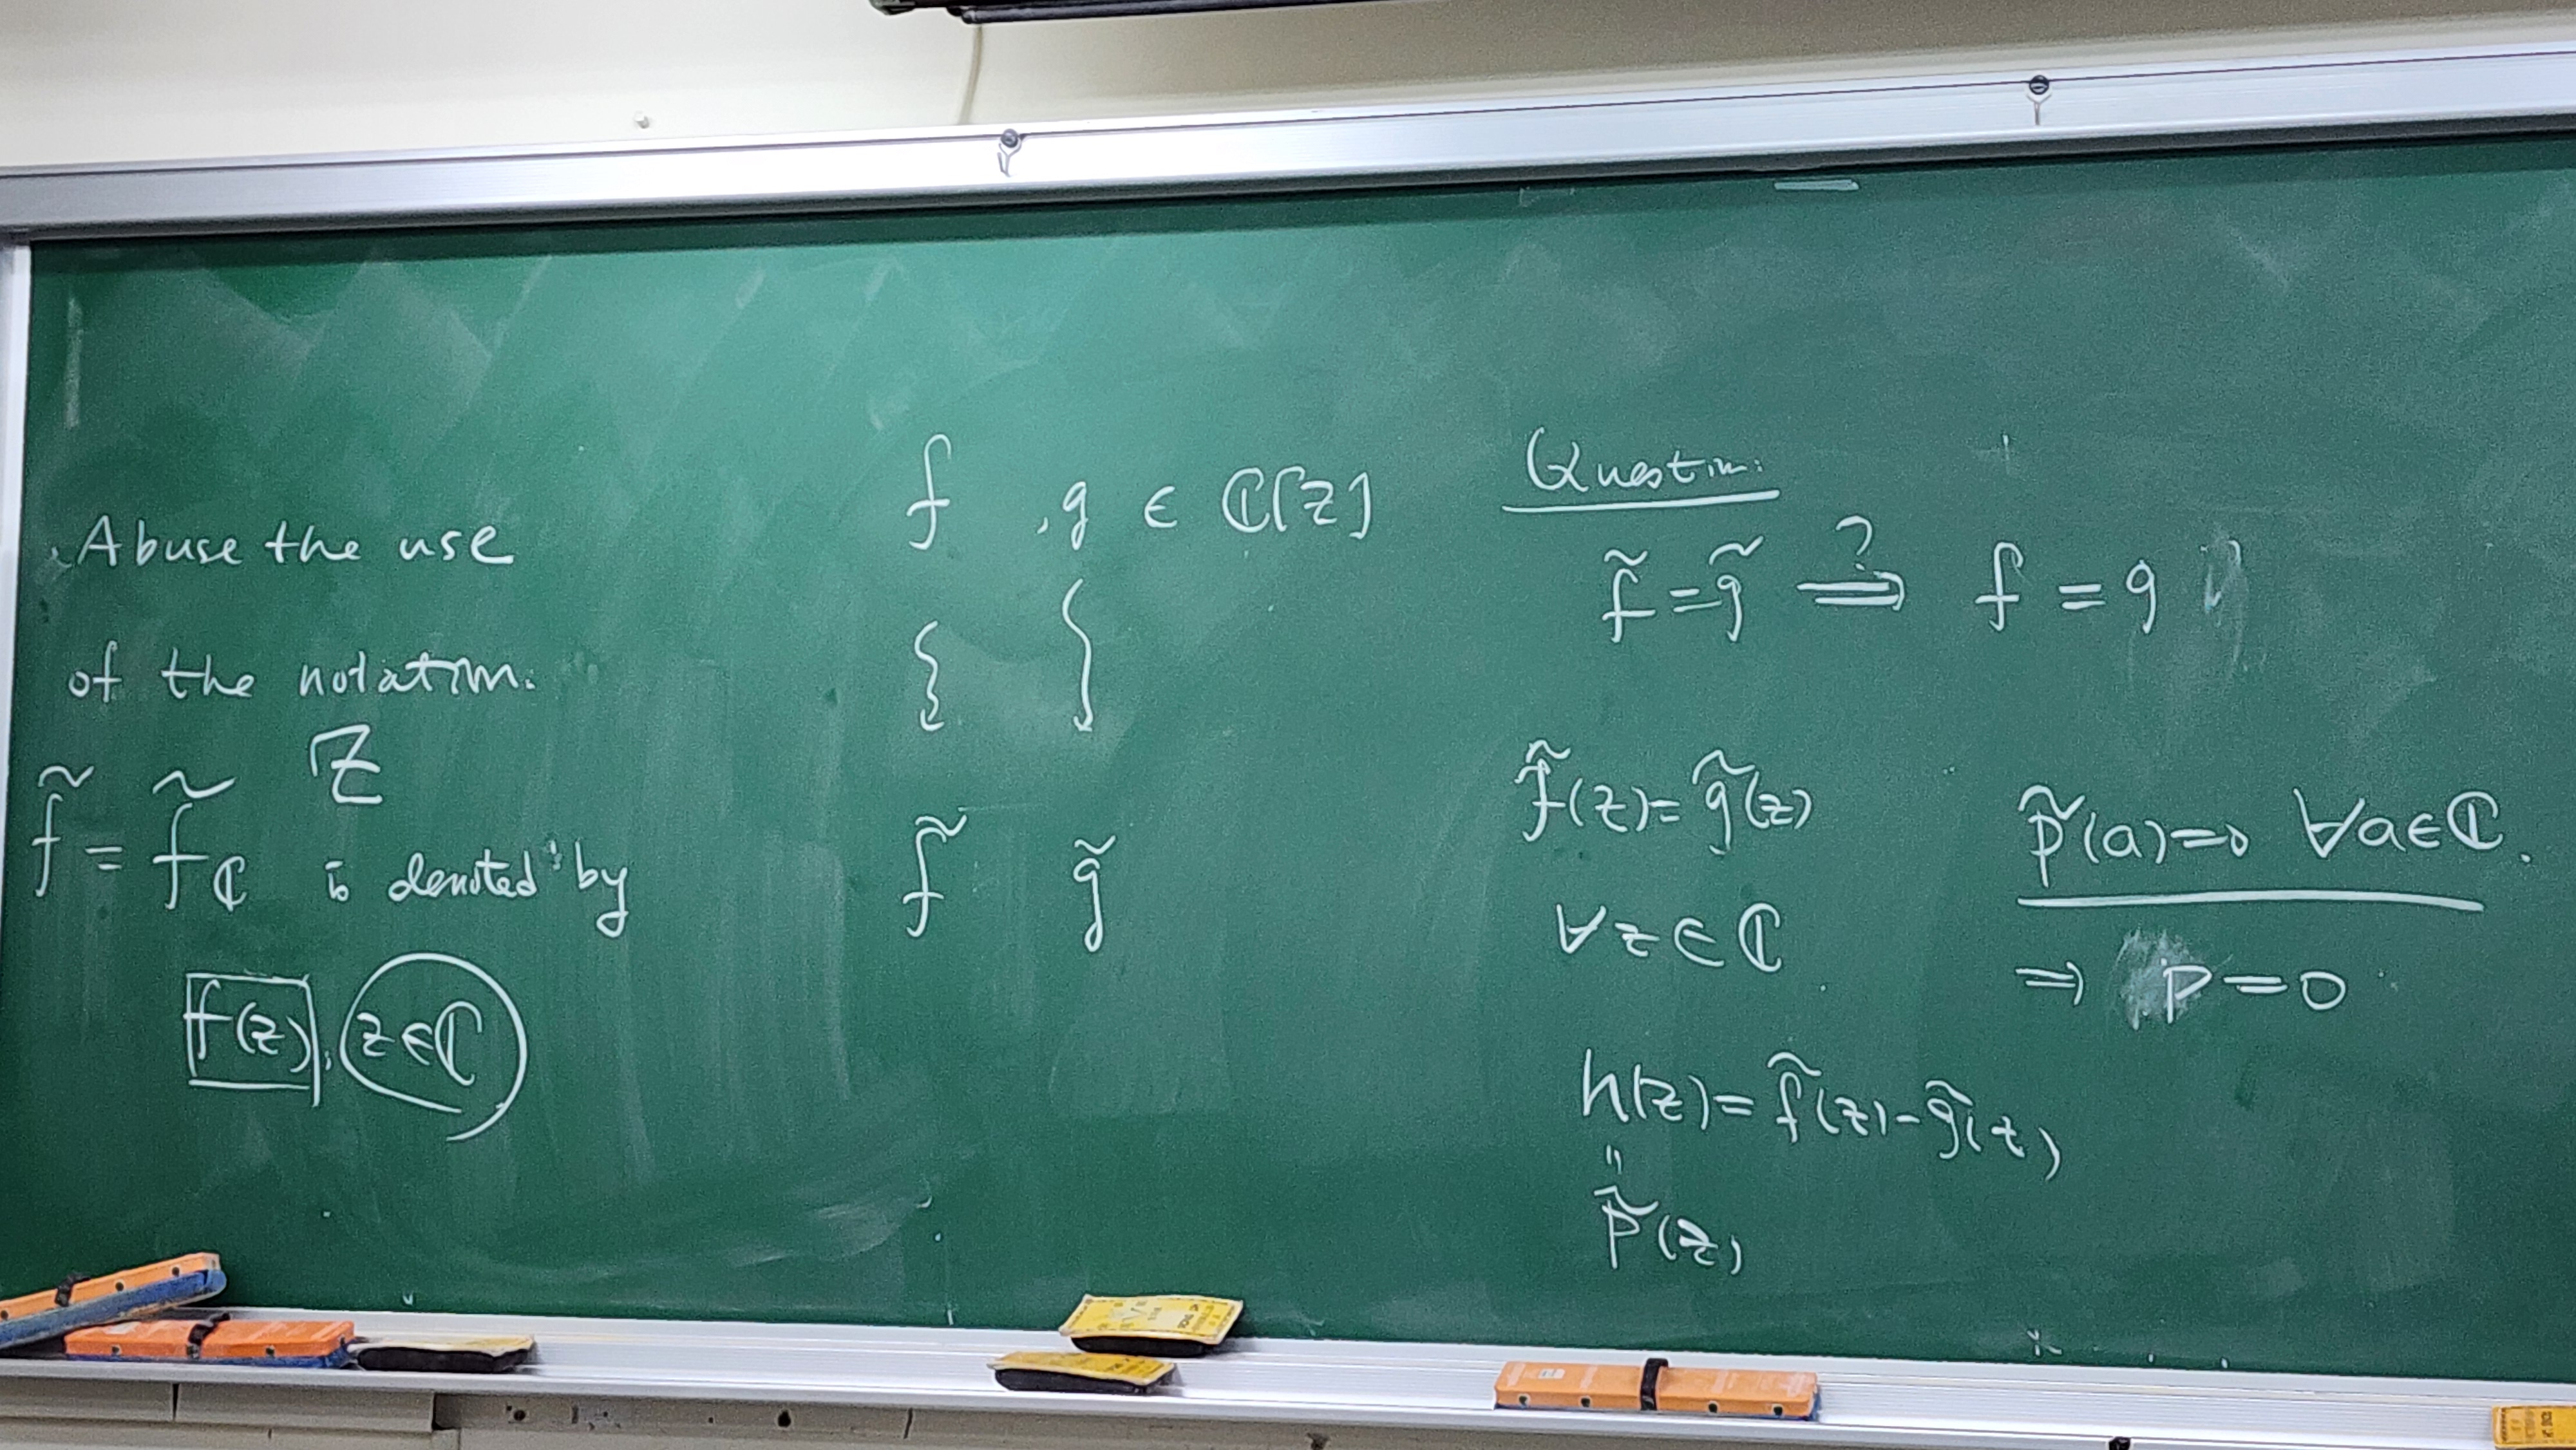 Abuse the use
of the notation.
Z
f̃ = f̃_ℂ is denoted by
f(z), z∈ℂ
f , g ∈ ℂ[z]
f̃ g̃
Question:
f̃ = g̃ ⟹? f = g
f̃(z) = g̃(z)
∀ z ∈ ℂ
h(z) = f̃(z) - g̃(z)
"
p̃(z)
p̃(a) = 0 ∀a∈ℂ.
⇒ p = 0